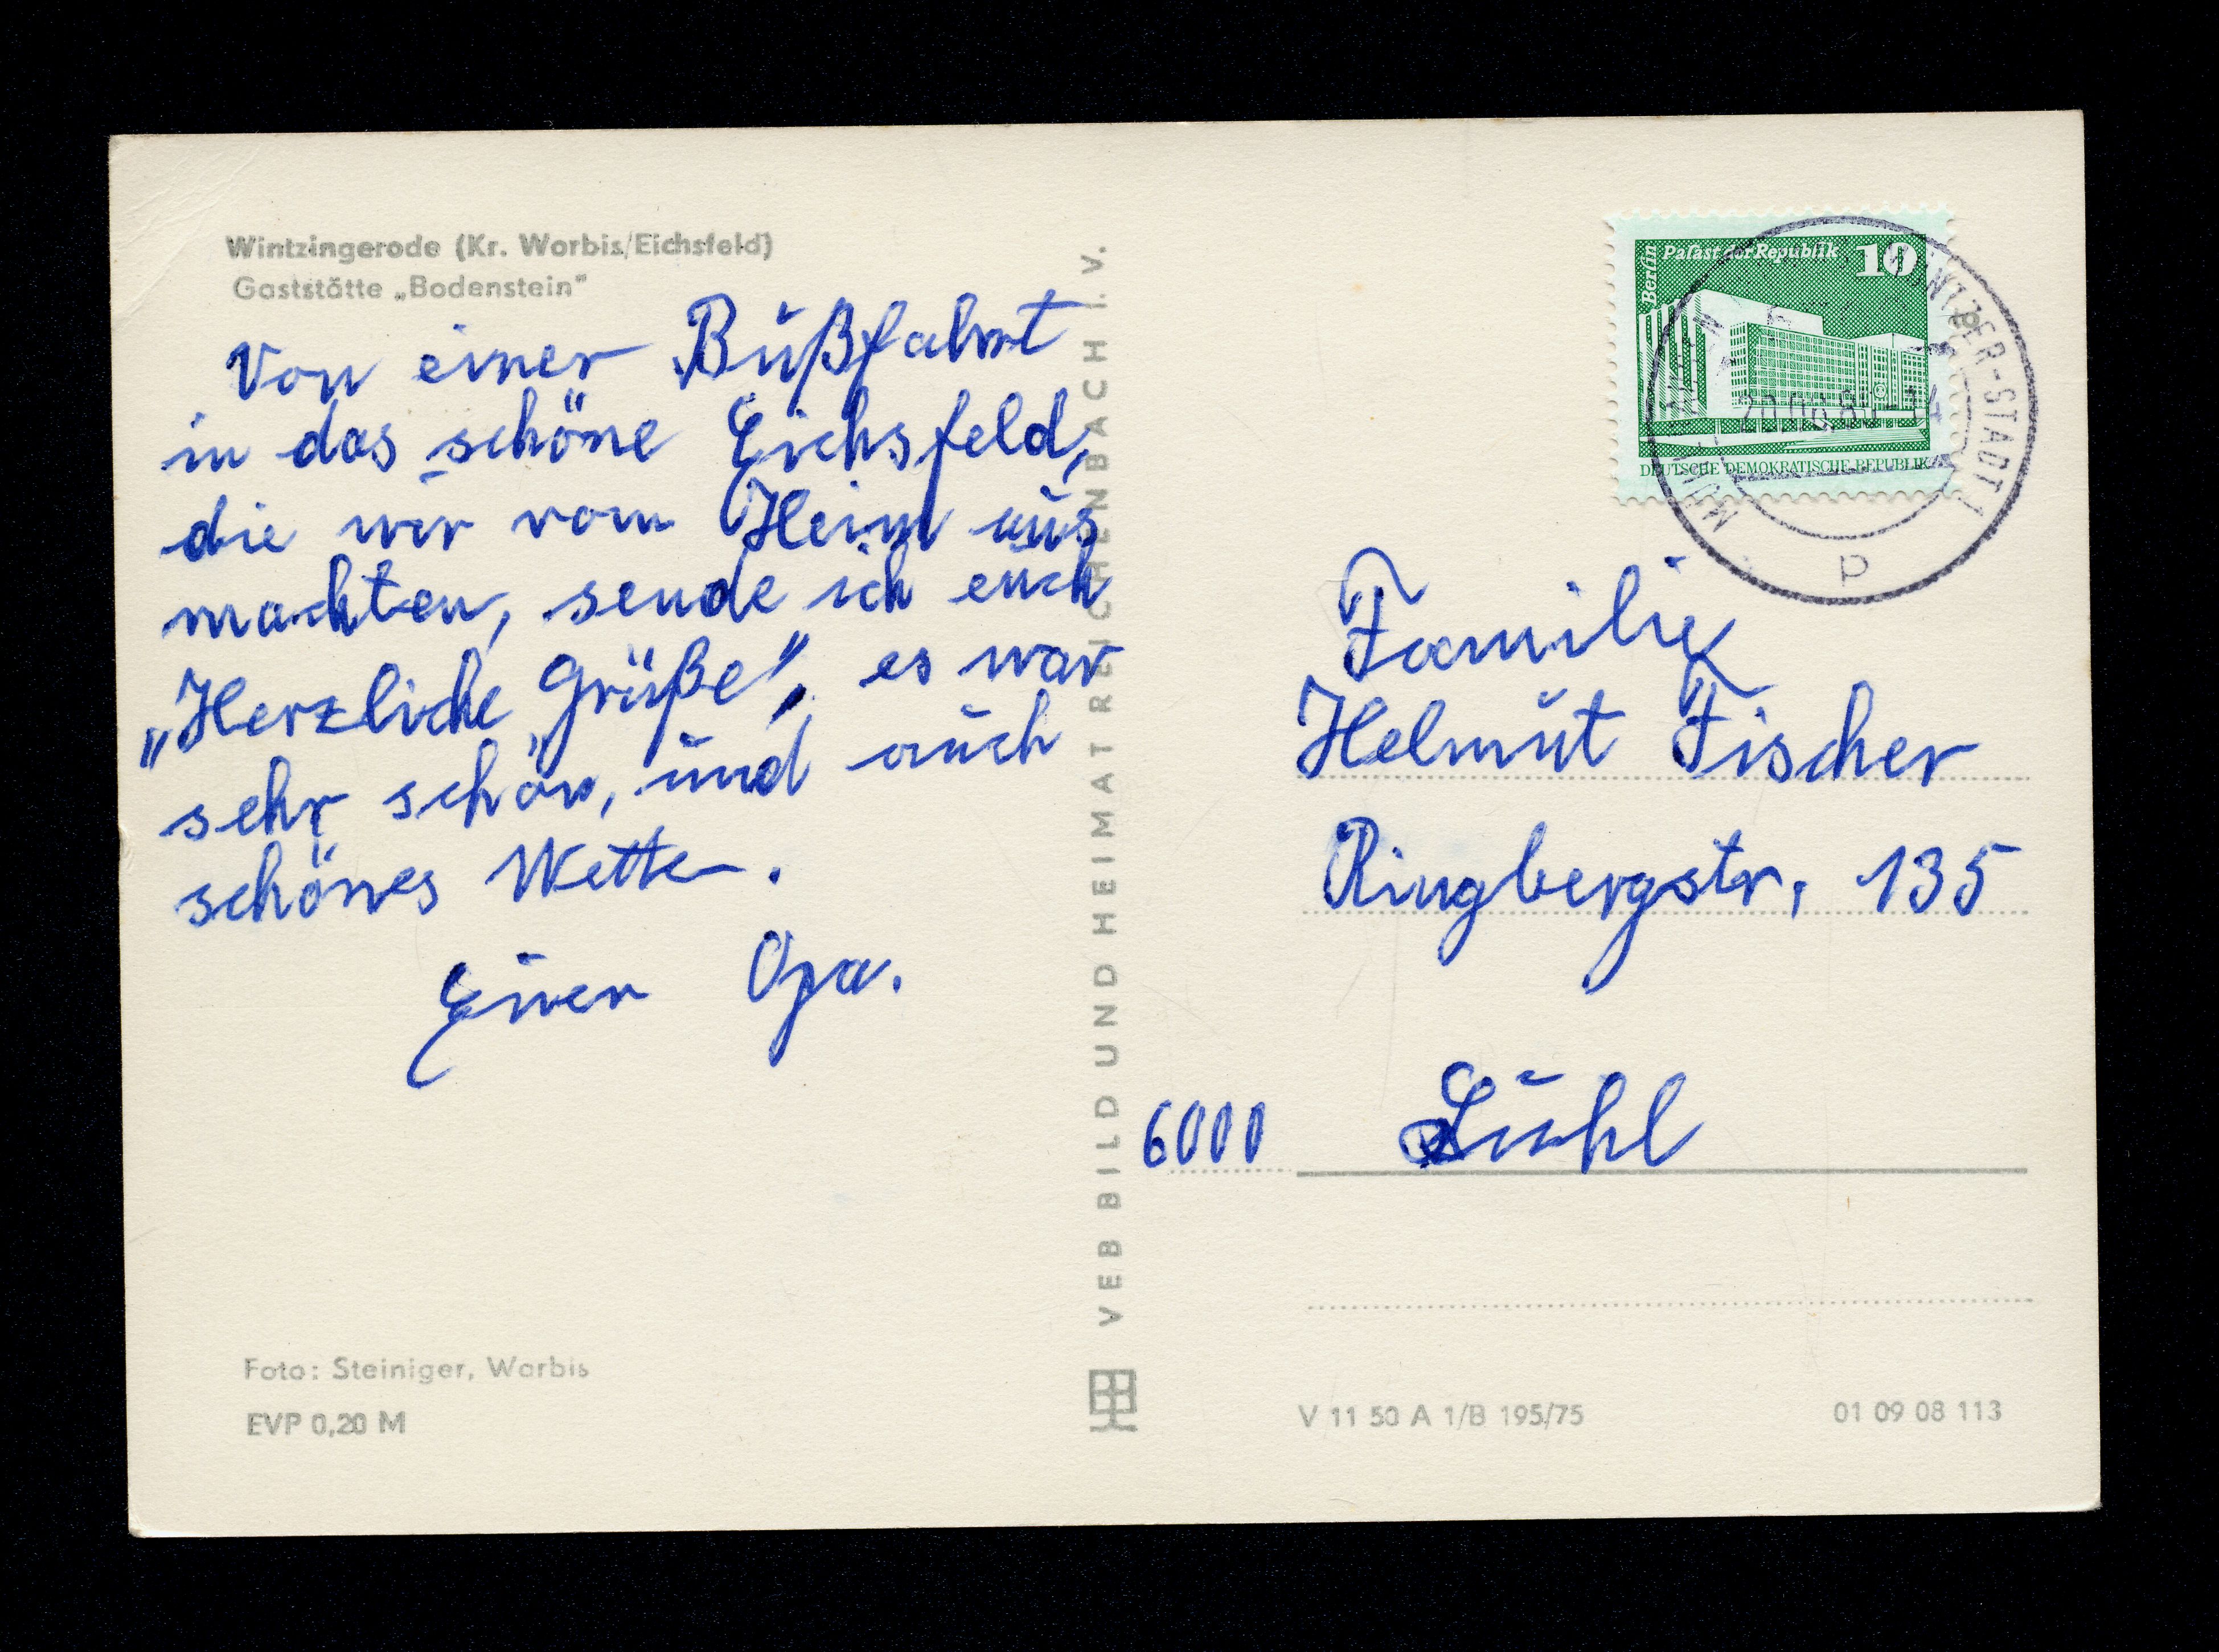 Wintzingerode (Kr. Worbis/Eichsfeld)
Gaststätte „Bodenstein"
Von einer Bußfahrt
in das schöne Eichsfeld,
die wir vom Heim aus
machten, sende ich euch
„Herzliche Grüße", es war
sehr schön, und auch
schönes Wetter.
Euer Opa.
Foto: Steiniger, Worbis
EVP 0,20 M
VEB BILD UND HEIMAT REICHENBACH I. V.
Berlin
Palast der Republik 10
DEUTSCHE DEMOKRATISCHE REPUBLIK
MÜNTZER-STADT
p
Familie
Helmut Fischer
Ringbergstr. 135
6000 Suhl
V 11 50 A 1/B 195/75
01 09 08 113